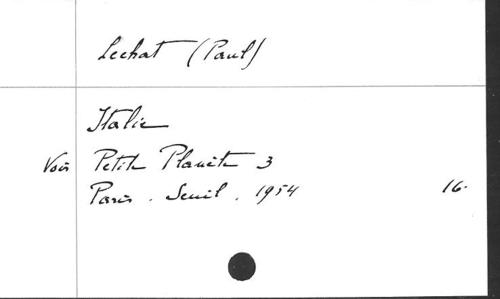 Lechat (Paul)
Italie
Voir Petite Planète 3
Paris. Seuil. 1954 16.